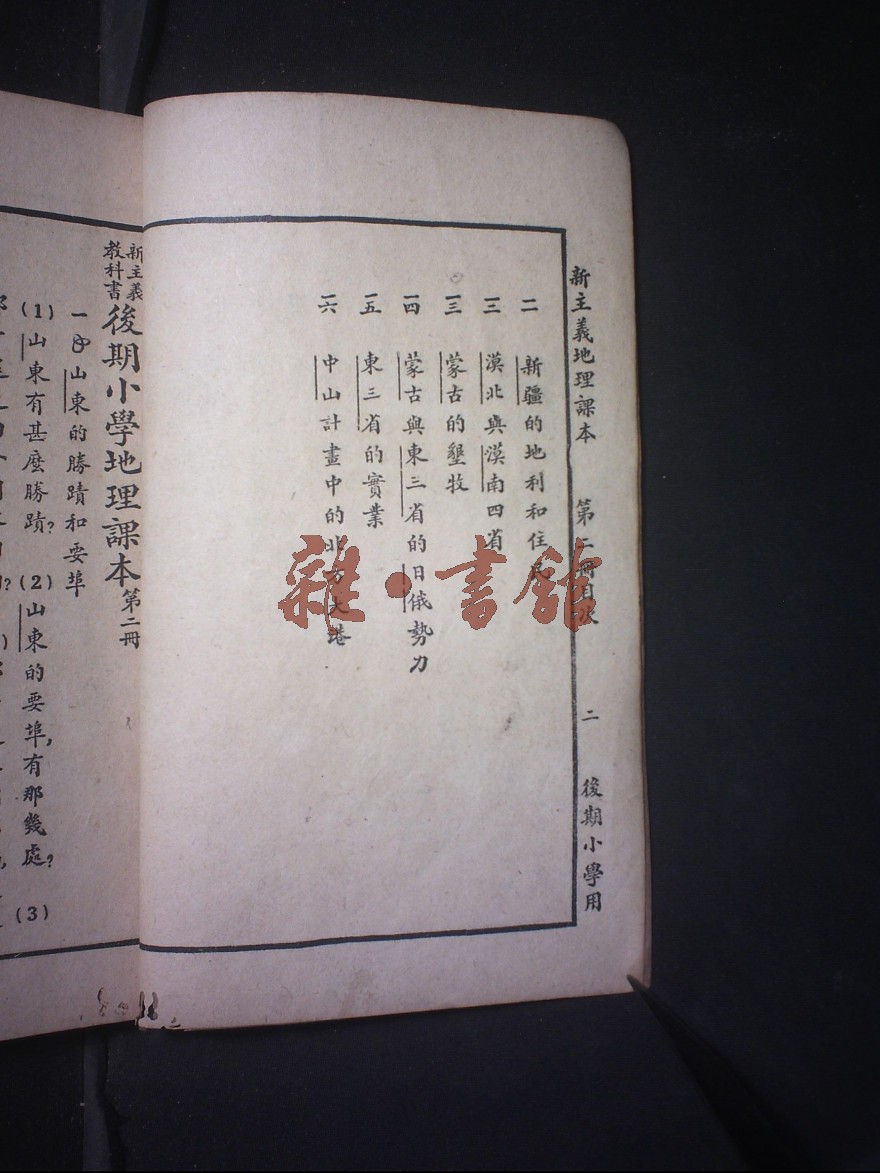 新主義地理課本 第二冊目次 二 後期小學用
一一 新疆的地利和住民
一二 漠北與漠南四省
一三 蒙古的墾牧
一四 蒙古與東三省的日俄勢力
一五 東三省的實業
一六 中山計畫中的北方大港
雜·書館
新主義
教科書
後期小學地理課本 第二冊
一 山東的勝蹟和要埠
(1)山東有甚麼勝蹟?(2)山東的要埠,有那幾處?(3)